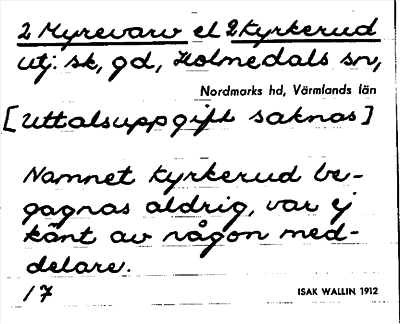 2 Myrevarv el 2 Kyrkerud
utj. sk, gd, Holmedals sn,
Nordmarks hd, Värmlands län
[Uttalsuppgift saknas]
Namnet Kyrkerud be-
gagnas aldrig, var ej
känt av någon med-
delare.
17
ISAK WALLIN 1912